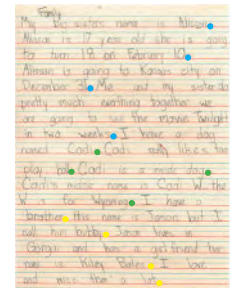 Family
My big sisters name is Allison.
Allison is 17 year old she is going
to turn 18 on February 10.
Allison is going to Kansas city on
December 31. Me and my sister do
pretty much everything together we
are going to see the movie Twilight
in two weeks. I have a dog
named Codi. Codi really likes to
play ball. Codi is a male dog.
Codi's middle name is Codi W the
W is for Wyoming. I have a
brother his name is Jason but I
call him bubby. Jason lives in
and has a girlfriend her
name is Kiley Bates. I love
and miss them a lot.